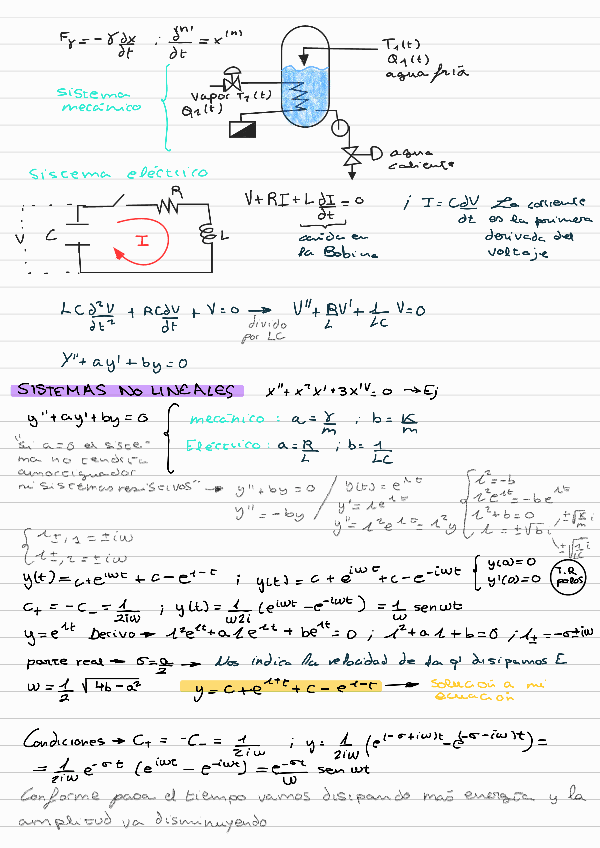 Fγ = -γ dx/dt ; d⁽ⁿ⁾/dt = x⁽ⁿ⁾
T₁(t)
Q₁(t)
agua fría
sistema
mecánico
vapor T₂(t)
Q₂(t)
agua
caliente
sistema eléctrico
R
V C I L
V + RI + L dI/dt = 0 ; I = C dV/dt La corriente
es la primera
derivada del
voltaje
caída en
la Bobina
LC d²V/dt² + RC dV/dt + V = 0 → V'' + R/L V' + 1/LC V = 0
divido
por LC
Y'' + ay' + by = 0
SISTEMAS NO LINEALES x'' + x²x' + 3x'V = 0 → Ej
y'' + ay' + by = 0
mecánico : a = γ/m ; b = K/m
Eléctrico : a = R/L ; b = 1/LC
"si a=0 el siste-
ma no tendría
amortiguador
ni sistemas resistivos" → y'' + by = 0 / y(t) = e^λt
y'' = -by / y' = λe^λt
y'' = λ²e^λt = λ²y
λ² = -b
λ²e^λt = -be^λt
λ² + b = 0
λ = ±√b i
±√K/m i
±√1/LC i
λ±,1 = ±iω
λ±,2 = ±iω
y(t) = C+e^λ+t + C-e^λ-t ; y(t) = C+e^iωt + C-e^-iωt
y(0)=0
y'(0)=0
T.R
polos
C+ = -C- = 1/2iω ; y(t) = 1/ω2i (e^iωt - e^-iωt) = 1/ω sen ωt
y = e^λt Derivo → λ²e^λt + aλe^λt + be^λt = 0 ; λ² + aλ + b = 0 ; λ± = -σ ± iω
parte real → σ = a/2 → Nos indica la velocidad de la q' disipamos E
ω = 1/2 √4b - a² y = C+e^λ+t + C-e^λ-t → solución a mi
ecuación
Condiciones → C+ = -C- = 1/2iω ; y = 1/2iω (e^(-σ+iω)t - e^(-σ-iω)t) =
= 1/2iω e^-σt (e^iωt - e^-iωt) = e^-σt/ω sen ωt
Conforme pasa el tiempo vamos disipando más energía y la
amplitud va disminuyendo